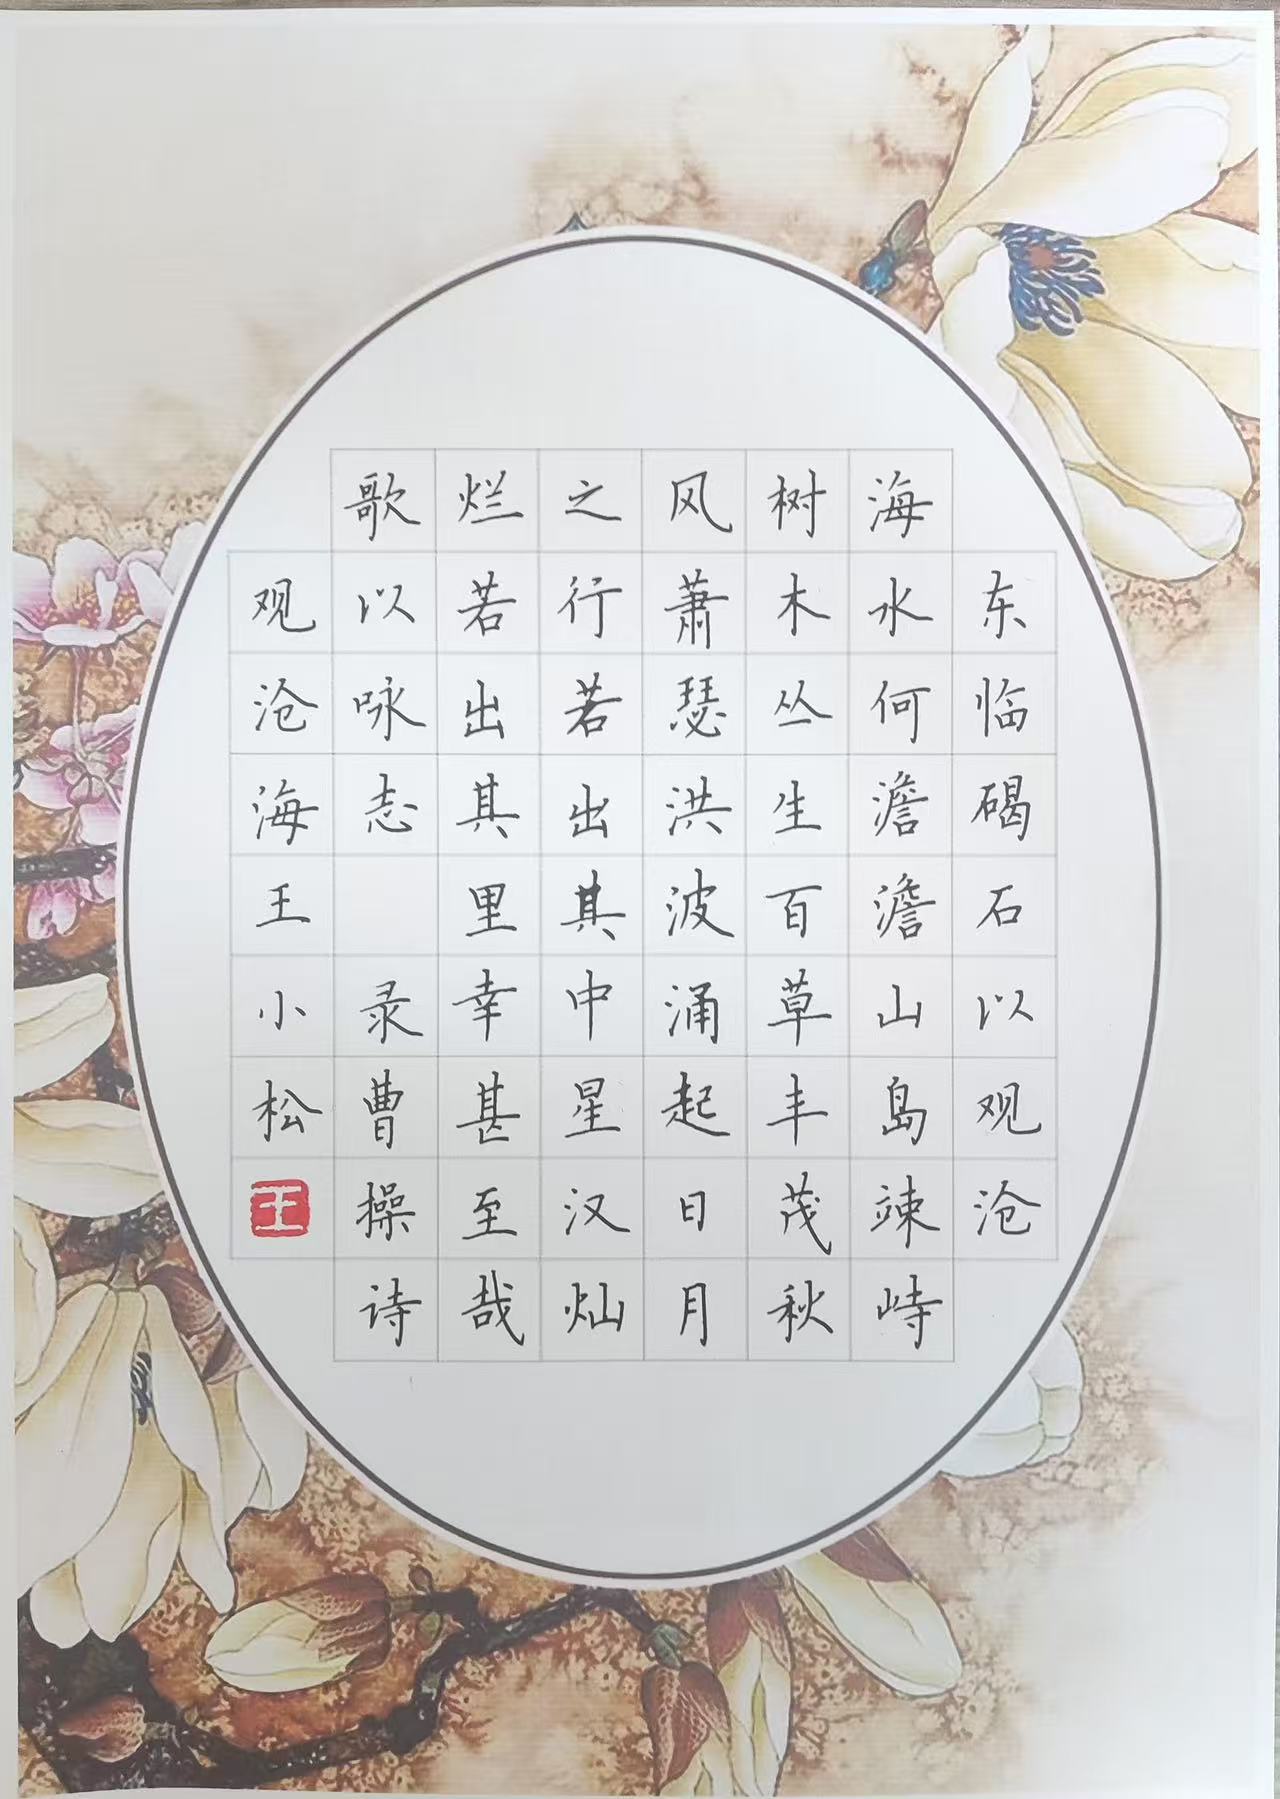 东临碣石以观沧
海水何澹澹山岛竦峙
树木丛生百草丰茂秋
风萧瑟洪波涌起日月
之行若出其中星汉灿
烂若出其里幸甚至哉
歌以咏志 录曹操诗
观沧海王小松
王